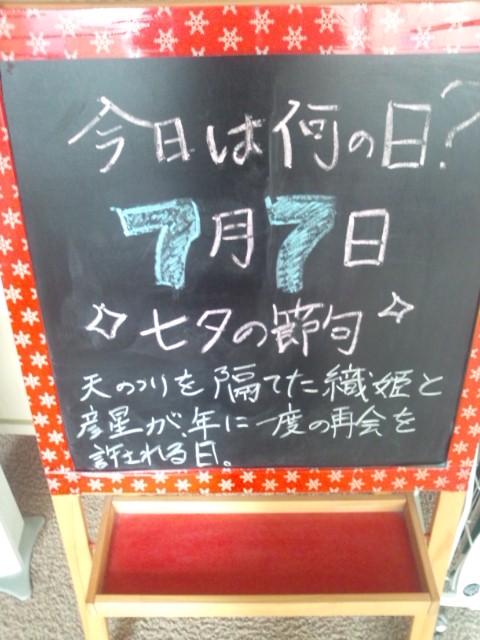 今日は何の日?
7月7日
☆七夕の節句☆
天のつりを隔てた織姫と
彦星が、年に一度の再会を
許される日。